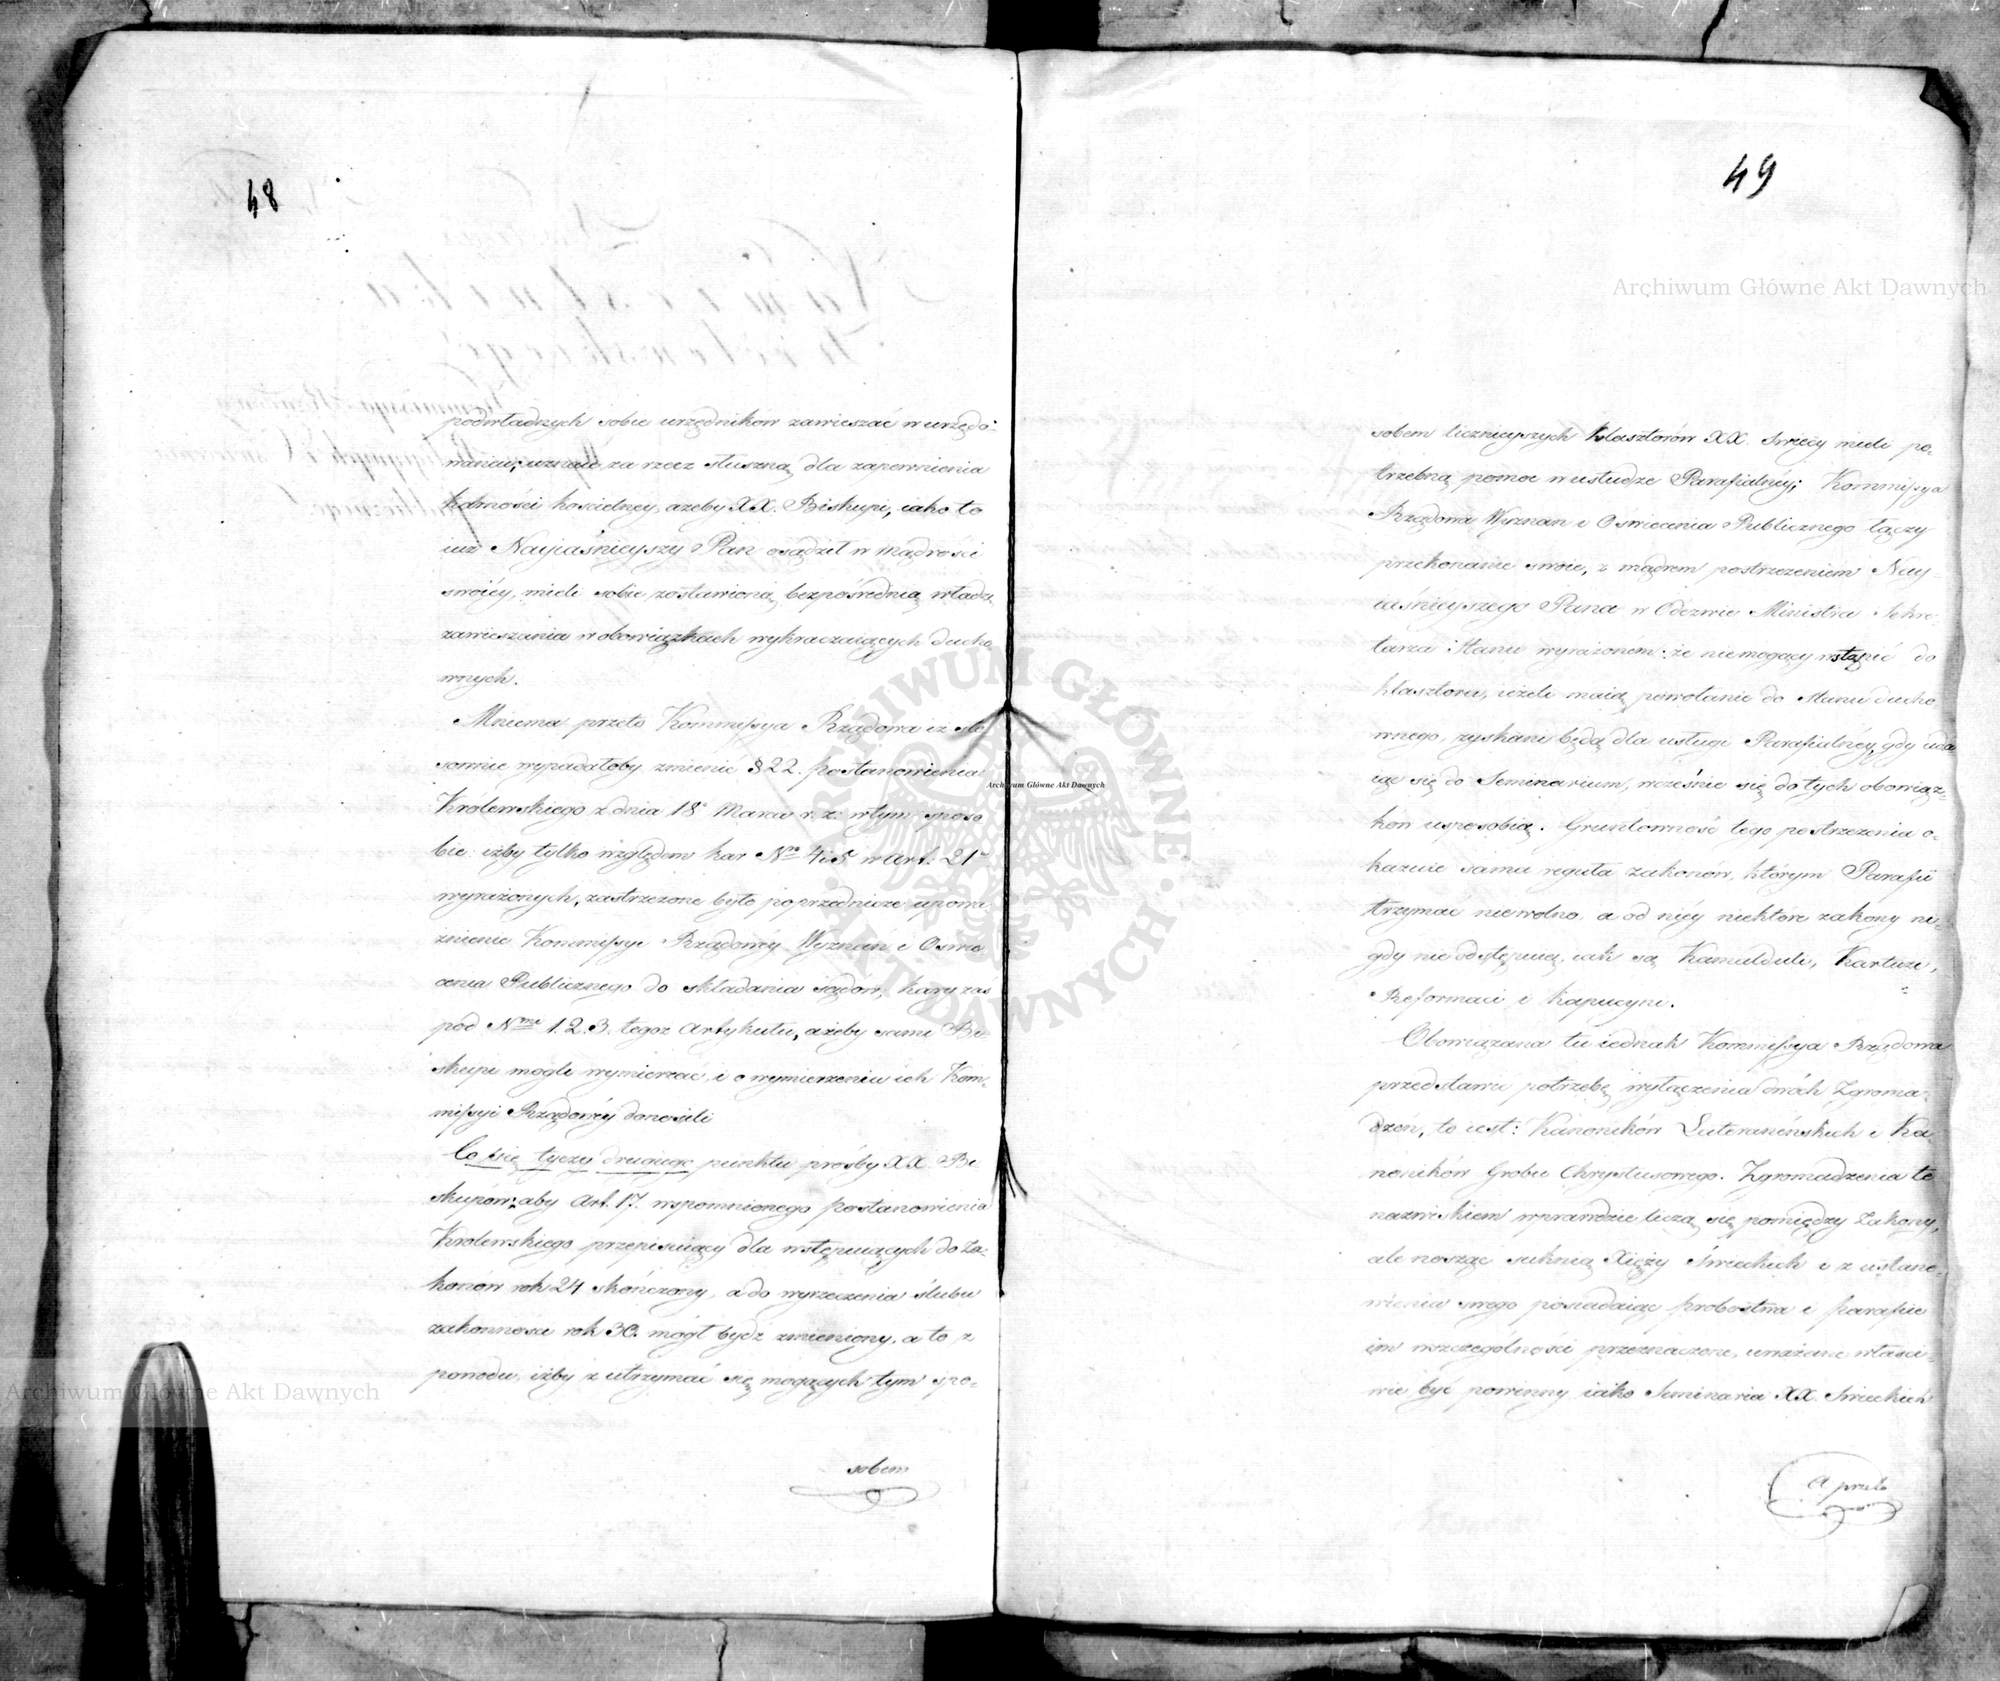 48
podwładnych sobie urzędników zawieszać w urzędo:
waniu; uznaie za rzecz słuszną dla zapewnienia
karności kościelney, ażeby XX. Biskupi, iako to
iuż Nayiaśnieyszy Pan osądził w mądrości
swoiey, mieli sobie zostawioną bezpośrednią władzę
zawieszania w obowiązkach wykraczaiących ducho
wnych.
Mniema przeto Kommissya Rządowa iż sto
sownie wypadałoby zmienić § 22. postanowienia
Królewskiego z dnia 18° Marca r. z. w tym sposo
bie: iżby tylko względem kar Nro 4 i 5 w Art: 21
wyrażonych, zastrzeżone było poprzednicze upowa
żnienie Kommissyi Rządowéy Wyznań i Oswie
cenia Publicznego do składania sądów; kary zaś
pod Nrmi 1. 2. 3. tegoż Artykułu, ażeby sami Bi-
skupi mogli wymierzać, i o wymierzeniu ich Kom-
missyi Rządowéy donosili
Co się tyczy drugiego punktu prośby XX. Bi
skupów; aby Art. 17. wspomnionego postanowienia
Krolewskiego, przepisuiący dla wstępuiących do Za-
konów rok 24 skończony, a do wyrzeczenia ślubu
zakonnego rok 30. mógł bydź zmieniony, a to z
powodu, iżby z utrzymać się mogących tym spo-
sobem
49
sobem licznieyszych klasztorów XX. Swiecy mieli po-
trzebną pomoc w usłudze Parafialnéy; Kommissya
Rządowa Wyznań i Oświecenia Publicznego łączy
przekonanie swoie, z mądrem postrzeżeniem Nay-
iaśnieyszego Pana w Odezwie Ministra Sekre-
tarza Stanu wyrażonem: że niemogący wstąpić do
klasztoru, ieżeli maią powołanie do stanu ducho
wnego, zyskani będą dla usługi Parafialnéy, gdy uda
iąc się do Seminarium, wcześnie się do tych obowiąz-
ków usposobią. Gruntowność tego postrzeżenia o-
kazuie sama reguła zakonów, którym Parafii
trzymać niewolno, a od niéy niektóre zakony ni-
gdy nie odstępuią, iak są Kamulduli, Kartuzi,
Reformaci i Kapucyni.
Obowiązana tu iednak Kommissya Rządowa
przedstawić potrzebę wyłączenia dwóch Zgroma-
dzeń, to iest: Kanoników Lateraneńskich i Ka
noników Grobu Chrystusowego. Zgromadzenia te
nazwiskiem wprawdzie liczą się pomiędzy Zakony,
ale nosząc suknią Xięży Świeckich i z ustano-
wienia swego posiadaiąc probostwa i parafie
im w szczególności przeznaczone, uważane właści-
wie być powinny iako Seminaria XX. Swieckich
A przeto
Archiwum Główne Akt Dawnych
Archiwum Główne Akt Dawnych
Archiwum Główne Akt Dawnych
ARCHIWUM GŁÓWNE AKT DAWNYCH